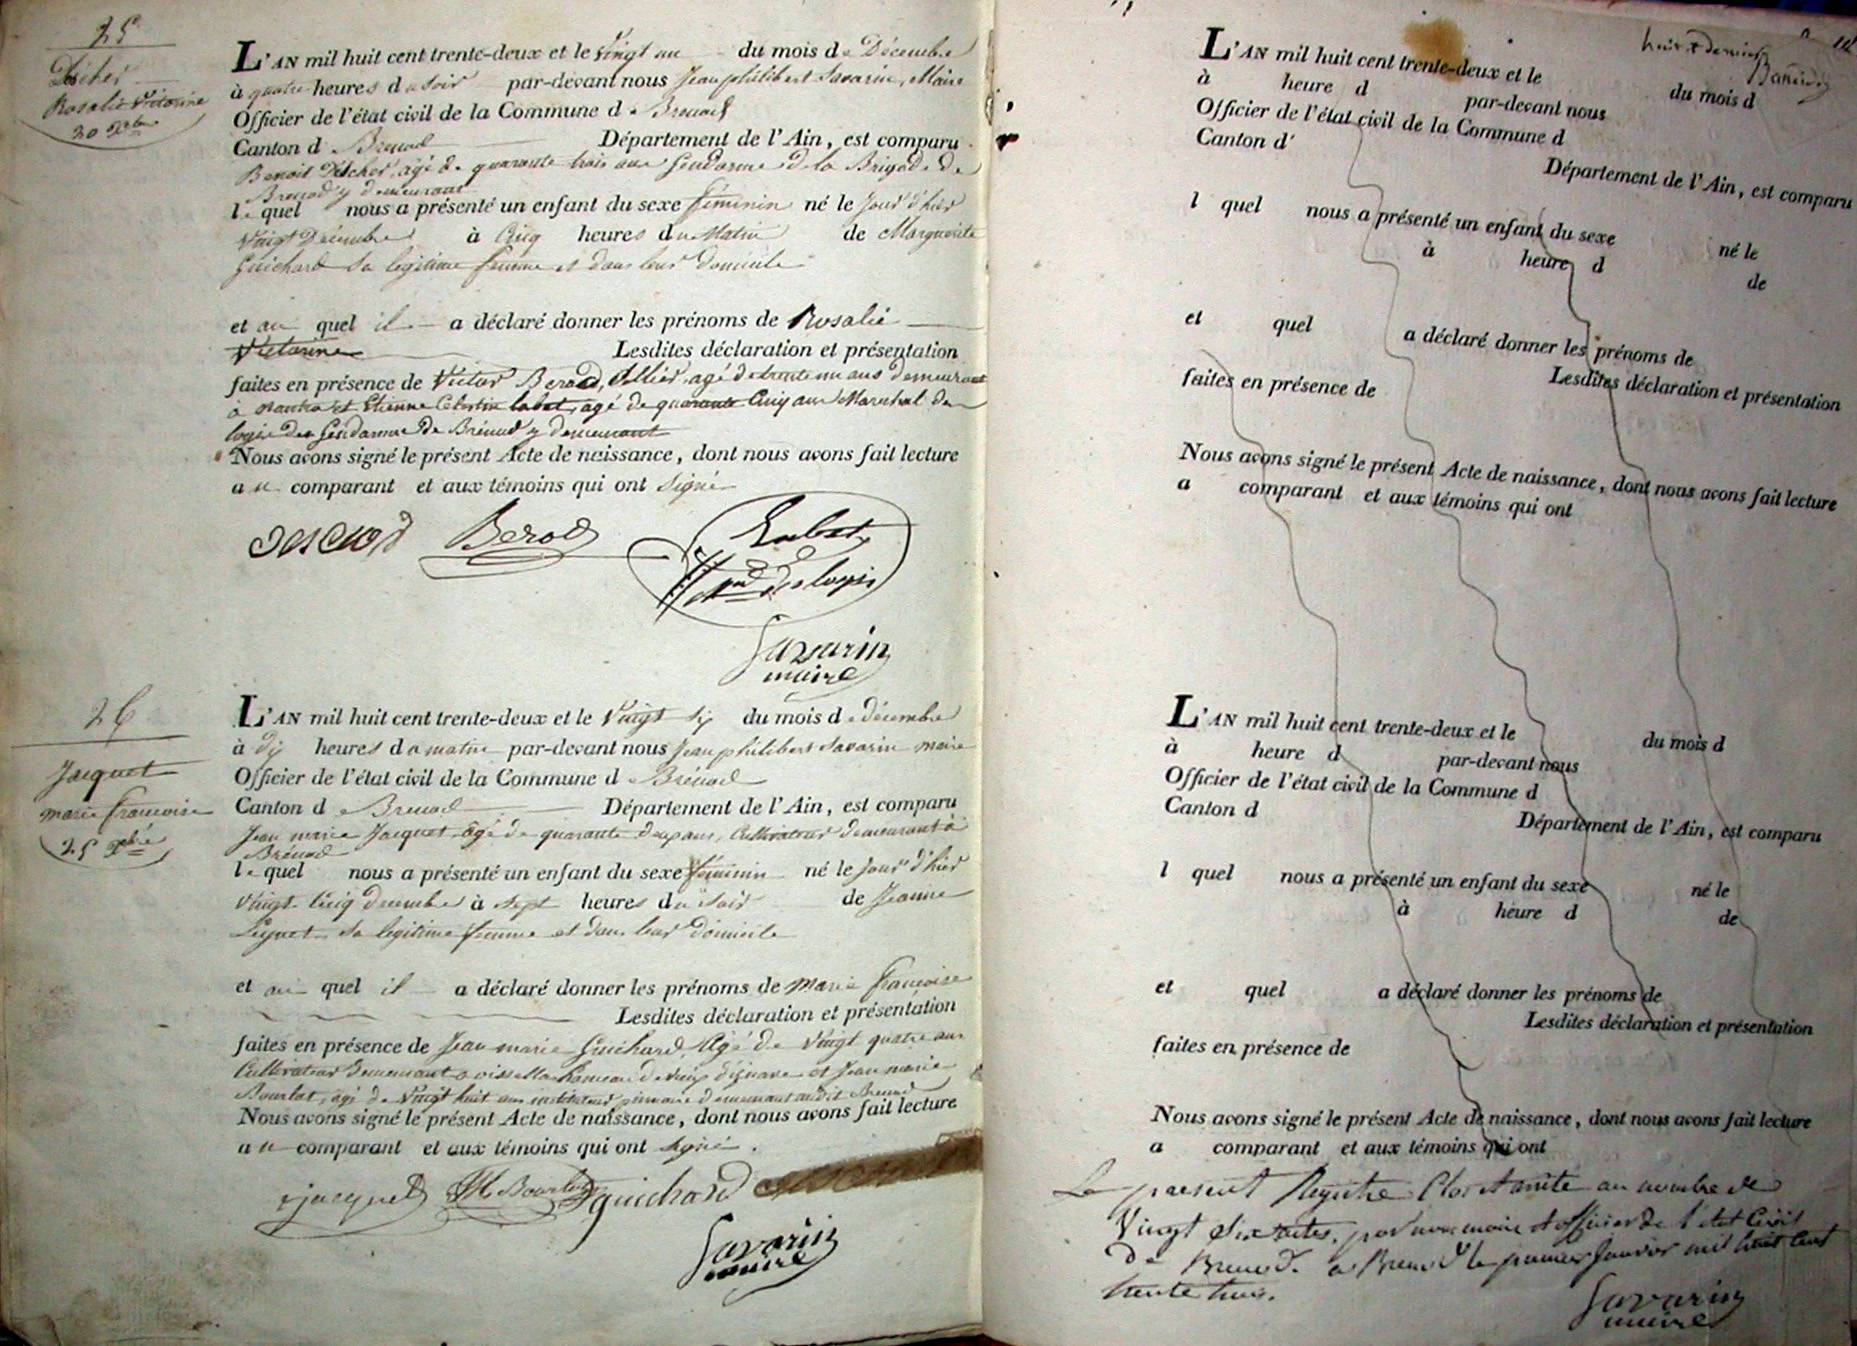 25
Rosalie Victorine
20 Xbre
L'AN mil huit cent trente-deux et le Vingt un du mois de Décembre
à quatre heures du soir par-devant nous Jean philibert Savarin, Maire
Officier de l'état civil de la Commune de Brenod
Canton de Brenod Département de l'Ain, est comparu
Benoit âgé de quarante trois ans Gendarme de la Brigade de
Brenod y demeurant
lequel nous a présenté un enfant du sexe féminin né le Jour d'hier
Vingt Décembre à Cinq heures du Matin de Marguerite
Guichard sa legitime femme et dans leur domicile
et au quel il a déclaré donner les prénoms de Rosalie
Victorine Lesdites déclaration et présentation
faites en présence de Victor Berod, Sellier, agé de trente un ans demeurant
à Nantua et Etienne Celestin Labat, agé de quarante Cinq ans Marechal des
logis des Gendarmes de Brénod y demeurant
Nous avons signé le présent Acte de naissance, dont nous avons fait lecture
au comparant et aux témoins qui ont signé
Berod
Labat
Savarin
maire
26
Jacquet
marie francoise
25 Xbre
L'AN mil huit cent trente-deux et le Vingt Six du mois de décembre
à dix heures du matin par-devant nous Jean philibert Savarin maire
Officier de l'état civil de la Commune de Brénod
Canton de Brenod Département de l'Ain, est comparu
Jean marie Jacquet, âgé de quarante deux ans, Cultivateur demeurant à
Brénod
lequel nous a présenté un enfant du sexe féminin né le Jour d'hier
Vingt Cinq décembre à Sept heures du soir de Jeanne
sa legitime femme et dans leur domicile
et au quel il a déclaré donner les prénoms de Marie françoise
Lesdites déclaration et présentation
faites en présence de Jean marie Guichard, Agé de Vingt quatre ans
Cultivateur demeurant a hameau de et Jean marie
Bourlot, agé de Vingt huit ans instituteur primaire demeurant audit Brenod
Nous avons signé le présent Acte de naissance, dont nous avons fait lecture
au comparant et aux témoins qui ont signé.
jacquet guichard
Savarin
maire
L'AN mil huit cent trente-deux et le du mois d
à heure d par-devant nous
Officier de l'état civil de la Commune d
Canton d Département de l'Ain, est comparu
l quel nous a présenté un enfant du sexe né le
à heure d de
et quel a déclaré donner les prénoms de
Lesdites déclaration et présentation
faites en présence de
Nous avons signé le présent Acte de naissance, dont nous avons fait lecture
a comparant et aux témoins qui ont
L'AN mil huit cent trente-deux et le du mois d
à heure d par-devant nous
Officier de l'état civil de la Commune d
Canton d Département de l'Ain, est comparu
l quel nous a présenté un enfant du sexe né le
à heure d de
et quel a déclaré donner les prénoms de
Lesdites déclaration et présentation
faites en présence de
Nous avons signé le présent Acte de naissance, dont nous avons fait lecture
a comparant et aux témoins qui ont
Le present Registre Clos et arrêté au nombre de
Vingt Six actes, par nous maire et officier de l'état Civil
de Brenod. a Brenod le premier Janvier mil huit cent
trente trois.
Savarin
maire